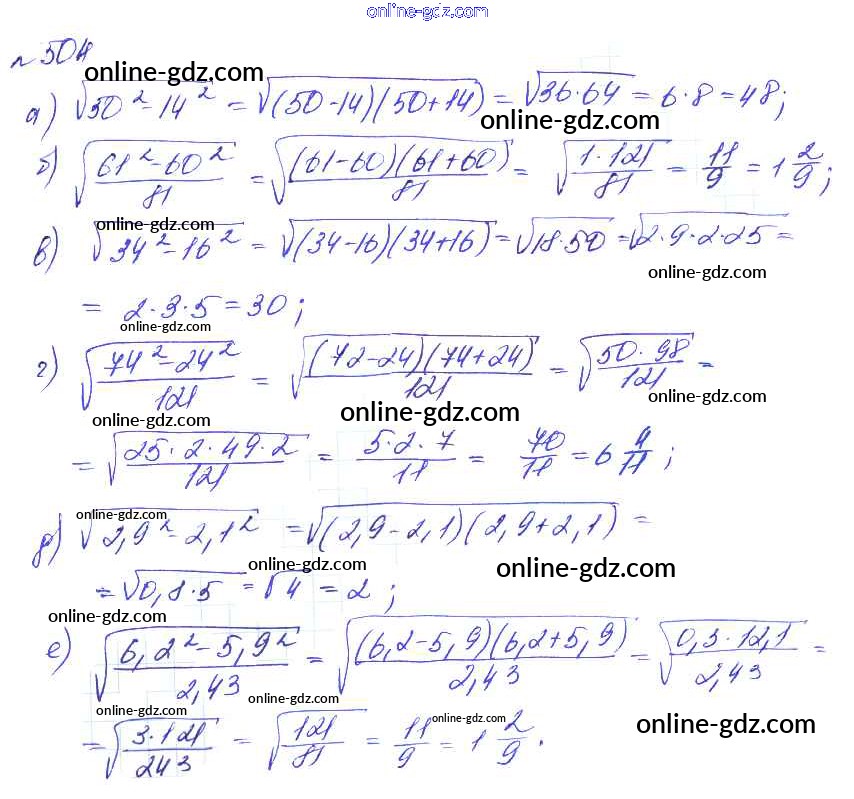 online-gdz.com
№ 504
online-gdz.com
а) √(50² - 14²) = √((50-14)(50+14)) = √(36·64) = 6·8 = 48;
online-gdz.com
б) √((61² - 60²)/81) = √((61-60)(61+60)/81) = √(1·121/81) = 11/9 = 1 2/9;
online-gdz.com
в) √(34² - 16²) = √((34-16)(34+16)) = √(18·50) = √(2·9·2·25) =
online-gdz.com
= 2·3·5 = 30;
online-gdz.com
г) √((74² - 24²)/121) = √((72-24)(74+24)/121) = √(50·98/121) =
online-gdz.com
online-gdz.com online-gdz.com
= √(25·2·49·2/121) = 5·2·7/11 = 70/11 = 6 4/11;
online-gdz.com
д) √(2,9² - 2,1²) = √((2,9-2,1)(2,9+2,1)) =
online-gdz.com online-gdz.com
= √(0,8·5) = √4 = 2;
online-gdz.com
е) √((6,2² - 5,9²)/2,43) = √((6,2-5,9)(6,2+5,9)/2,43) = √(0,3·12,1/2,43) =
online-gdz.com online-gdz.com online-gdz.com
= √(3·121/243) = √(121/81) = 11/9 = 1 2/9.
online-gdz.com online-gdz.com